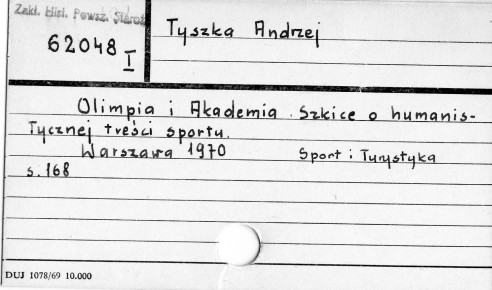 Zakł. Hist. Powsz. Staroż
62048 I
Tyszka Andrzej
Olimpia i Akademia. Szkice o humanis-
tycznej treści sportu.
Warszawa 1970 Sport i Turystyka
s. 168
DUJ 1078/69 10.000